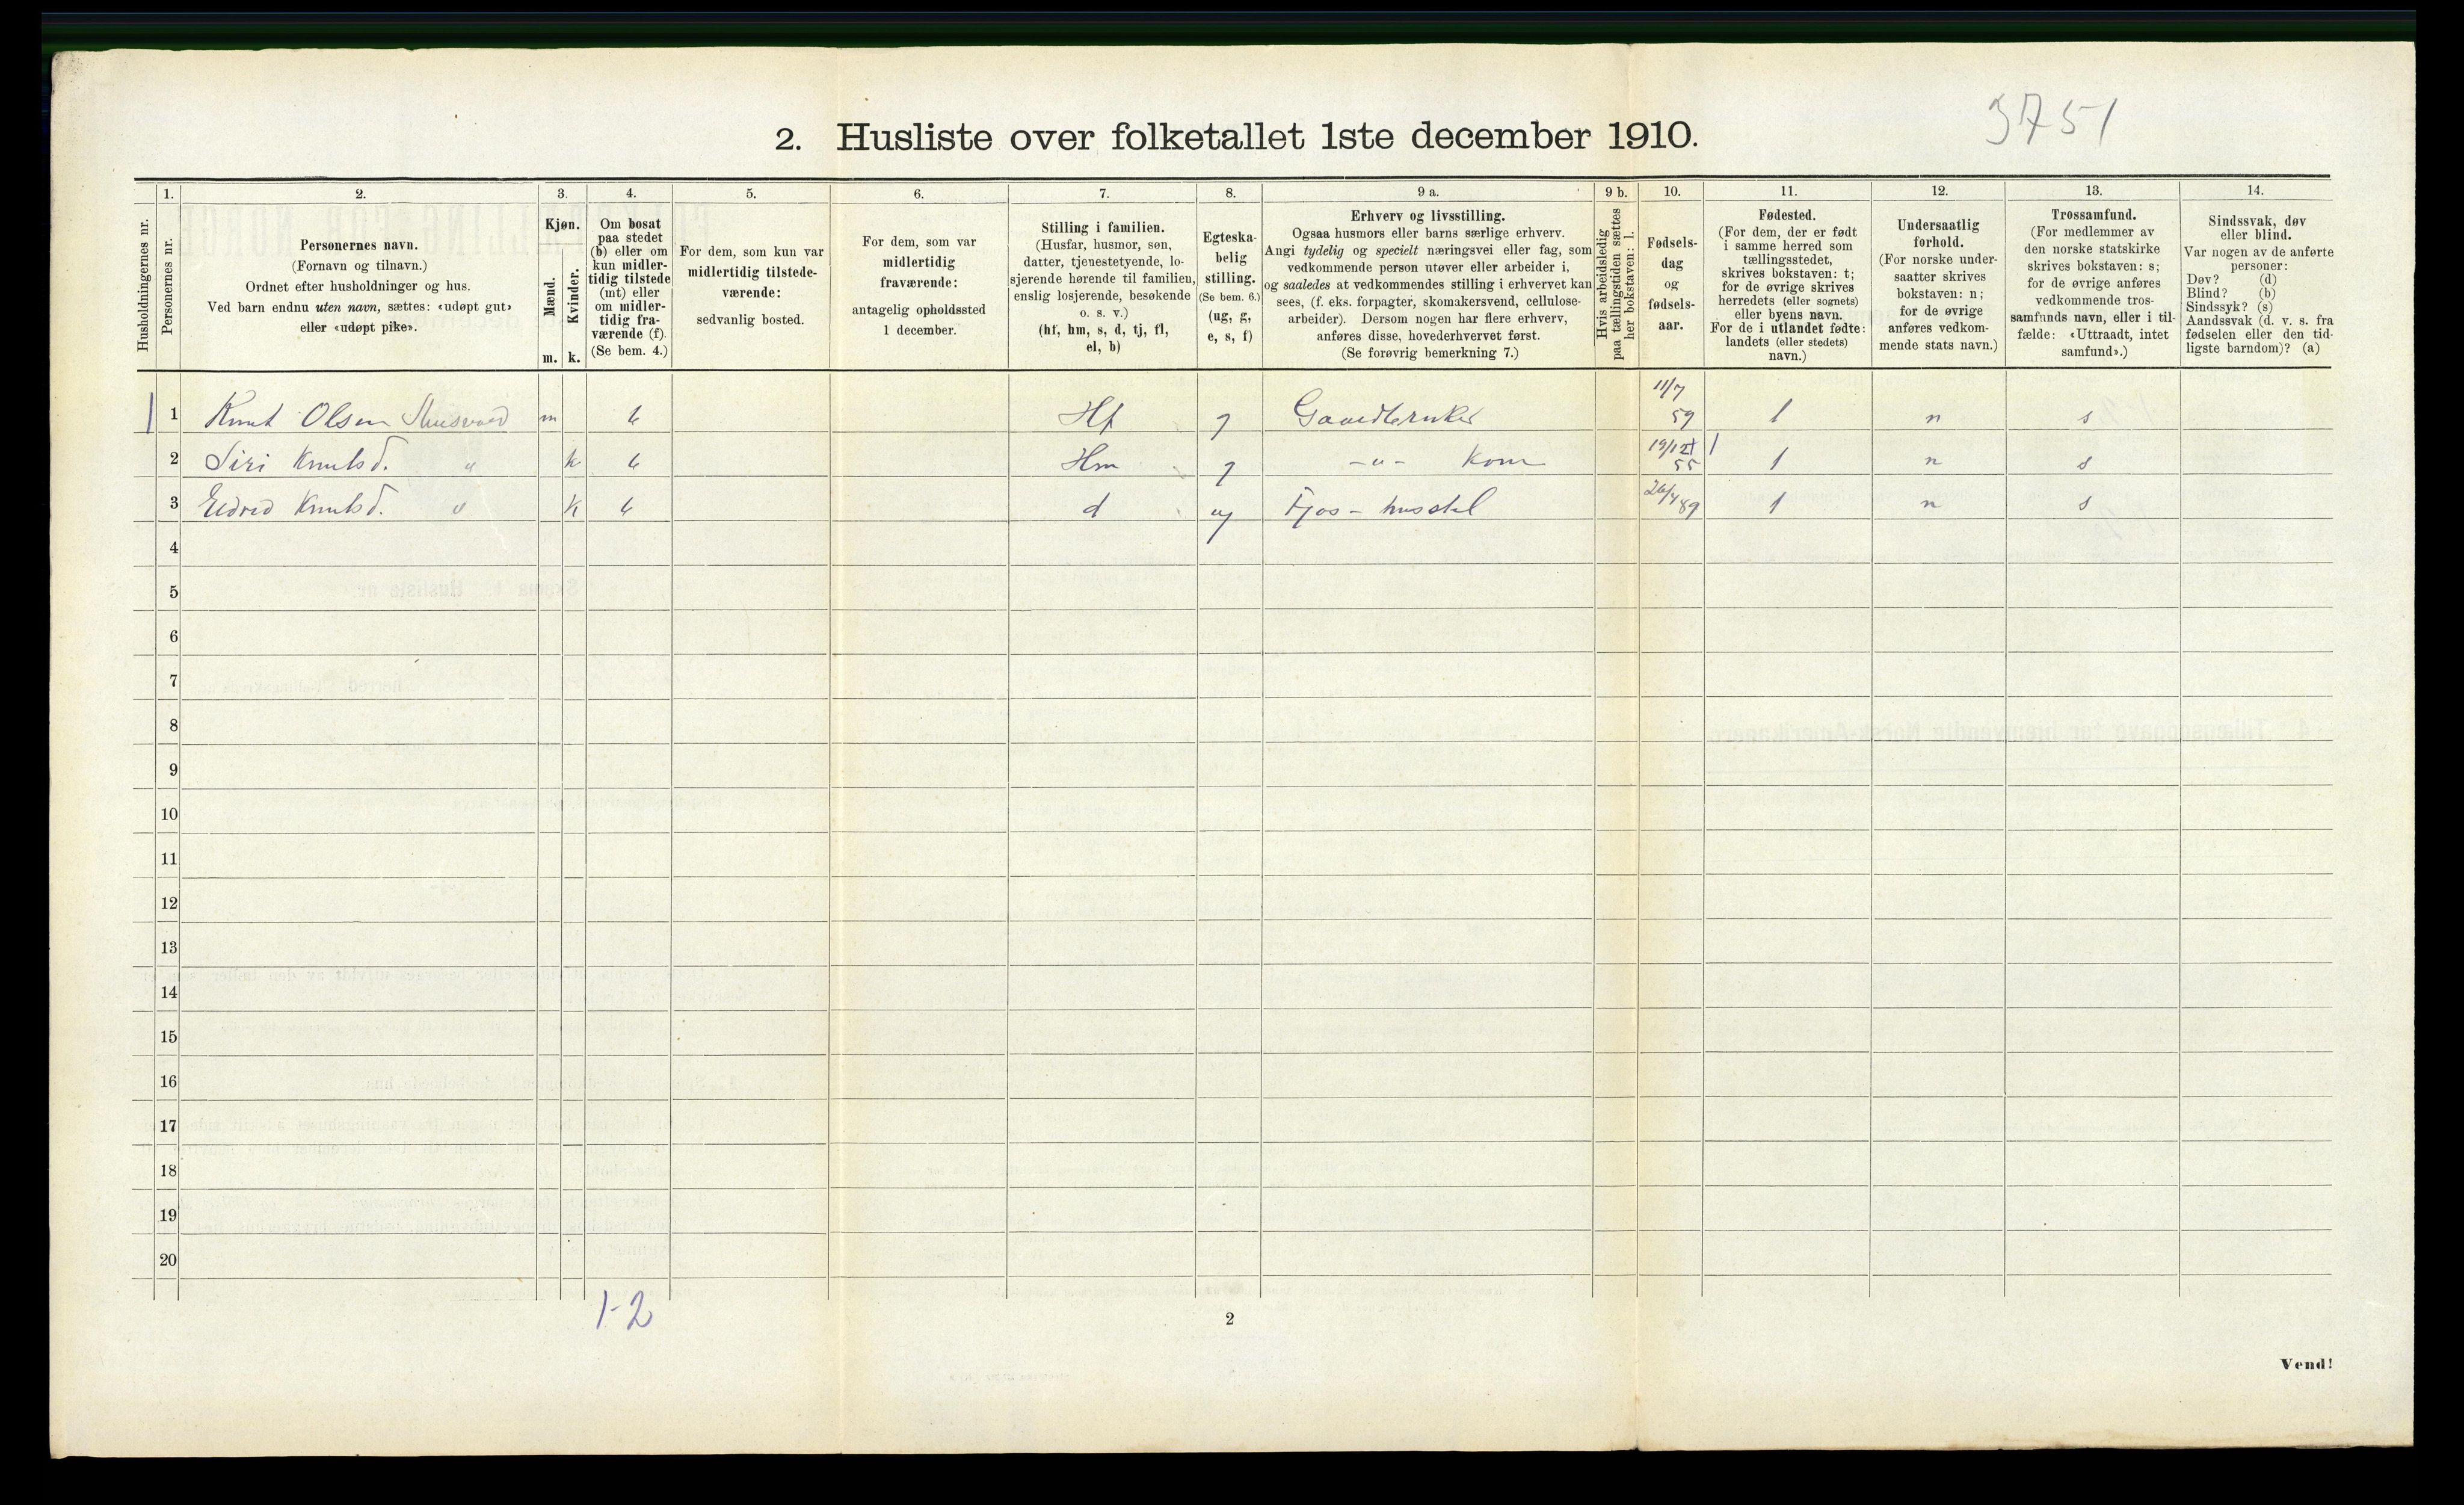 3751
2. Husliste over folketallet 1ste december 1910.
Husholdningernes nr.
1.
Personernes nr.
2.
Personernes navn.
(Fornavn og tilnavn.)
Ordnet efter husholdninger og hus.
Ved barn endnu uten navn, sættes: «udøpt gut»
eller «udøpt pike».
3.
Kjøn.
Mænd.
Kvinder.
m. k.
4.
Om bosat
paa stedet
(b) eller om
kun midler-
tidig tilstede
(mt) eller
om midler-
tidig fra-
værende (f).
(Se bem. 4.)
5.
For dem, som kun var
midlertidig tilstede-
værende:
sedvanlig bosted.
6.
For dem, som var
midlertidig
fraværende:
antagelig opholdssted
1 december.
7.
Stilling i familien.
(Husfar, husmor, søn,
datter, tjenestetyende, lo-
sjerende hørende til familien,
enslig losjerende, besøkende
o. s. v.)
(hf, hm, s, d, tj, fl,
el, b)
8.
Egteska-
belig
stilling.
(Se bem. 6.)
(ug, g,
e, s, f)
9 a.
Erhverv og livsstilling.
Ogsaa husmors eller barns særlige erhverv.
Angi tydelig og specielt næringsvei eller fag, som
vedkommende person utøver eller arbeider i,
og saaledes at vedkommendes stilling i erhvervet kan
sees, (f. eks. forpagter, skomakersvend, cellulose-
arbeider). Dersom nogen har flere erhverv,
anføres disse, hovederhvervet først.
(Se forøvrig bemerkning 7.)
9 b.
Hvis arbeidsledig
paa tællingstiden sættes
her bokstaven: l.
10.
Fødsels-
dag
og
fødsels-
aar.
11.
Fødested.
(For dem, der er født
i samme herred som
tællingsstedet,
skrives bokstaven: t;
for de øvrige skrives
herredets (eller sognets)
eller byens navn.
For de i utlandet fødte:
landets (eller stedets)
navn.)
12.
Undersaatlig
forhold.
(For norske under-
saatter skrives
bokstaven: n;
for de øvrige
anføres vedkom-
mende stats navn.)
13.
Trossamfund.
(For medlemmer av
den norske statskirke
skrives bokstaven: s;
for de øvrige anføres
vedkommende tros-
samfunds navn, eller i til-
fælde: «Uttraadt, intet
samfund».)
14.
Sindssvak, døv
eller blind.
Var nogen av de anførte
personer:
Døv? (d)
Blind? (b)
Sindssyk? (s)
Aandssvak (d. v. s. fra
fødselen eller den tid-
ligste barndom)? (a)
1 1 Knut Olsen m b Hf g Gaardbruker 11/7 59 t n s
2 Siri Knutsd. " k b Hm g -"- kone 19/12 55 t n s
3 Knutsd. " k b d ug Fjøs- husstel 26/4 89 t n s
4
5
6
7
8
9
10
11
12
13
14
15
16
17
18
19
20
1-2
2
Vend!